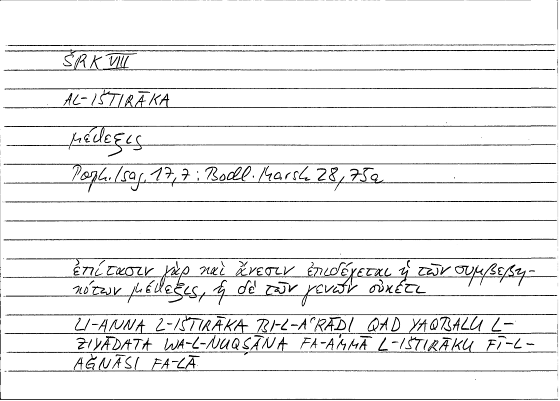 ŠRK VIII
AL-IŠTIRĀKA
μέθεξις
Porph. Isag. 17,7 : Bodl. Marsh 28, 75a
ἐπίτασιν γὰρ καὶ ἄνεσιν ἐπιδέχεται ἡ τῶν συμβεβη-
κότων μέθεξις, ἡ δὲ τῶν γενῶν οὐκέτι
LI-ANNA L-IŠTIRĀKA BI-L-AʿRĀḌI QAD YAQBALU L-
ZIYĀDATA WA-L-NUQṢĀNA FA-AMMĀ L-IŠTIRĀKU FĪ-L-
AǦNĀSI FA-LĀ